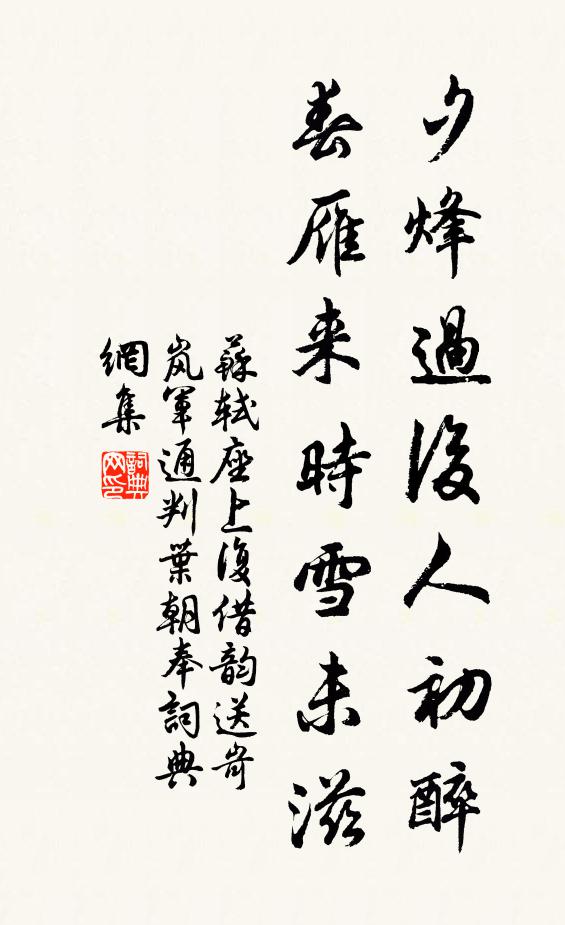 夕烽過後人初醉
春雁来時雪未滋
蘇軾座上復借韵送岢
岚軍通判葉朝奉詞典
網集
詞典
网印